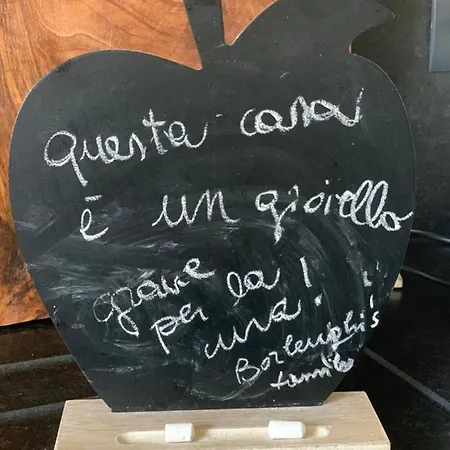 questa casa
è un gioiello
grazie
per la
cura!
Borlenghi's
family